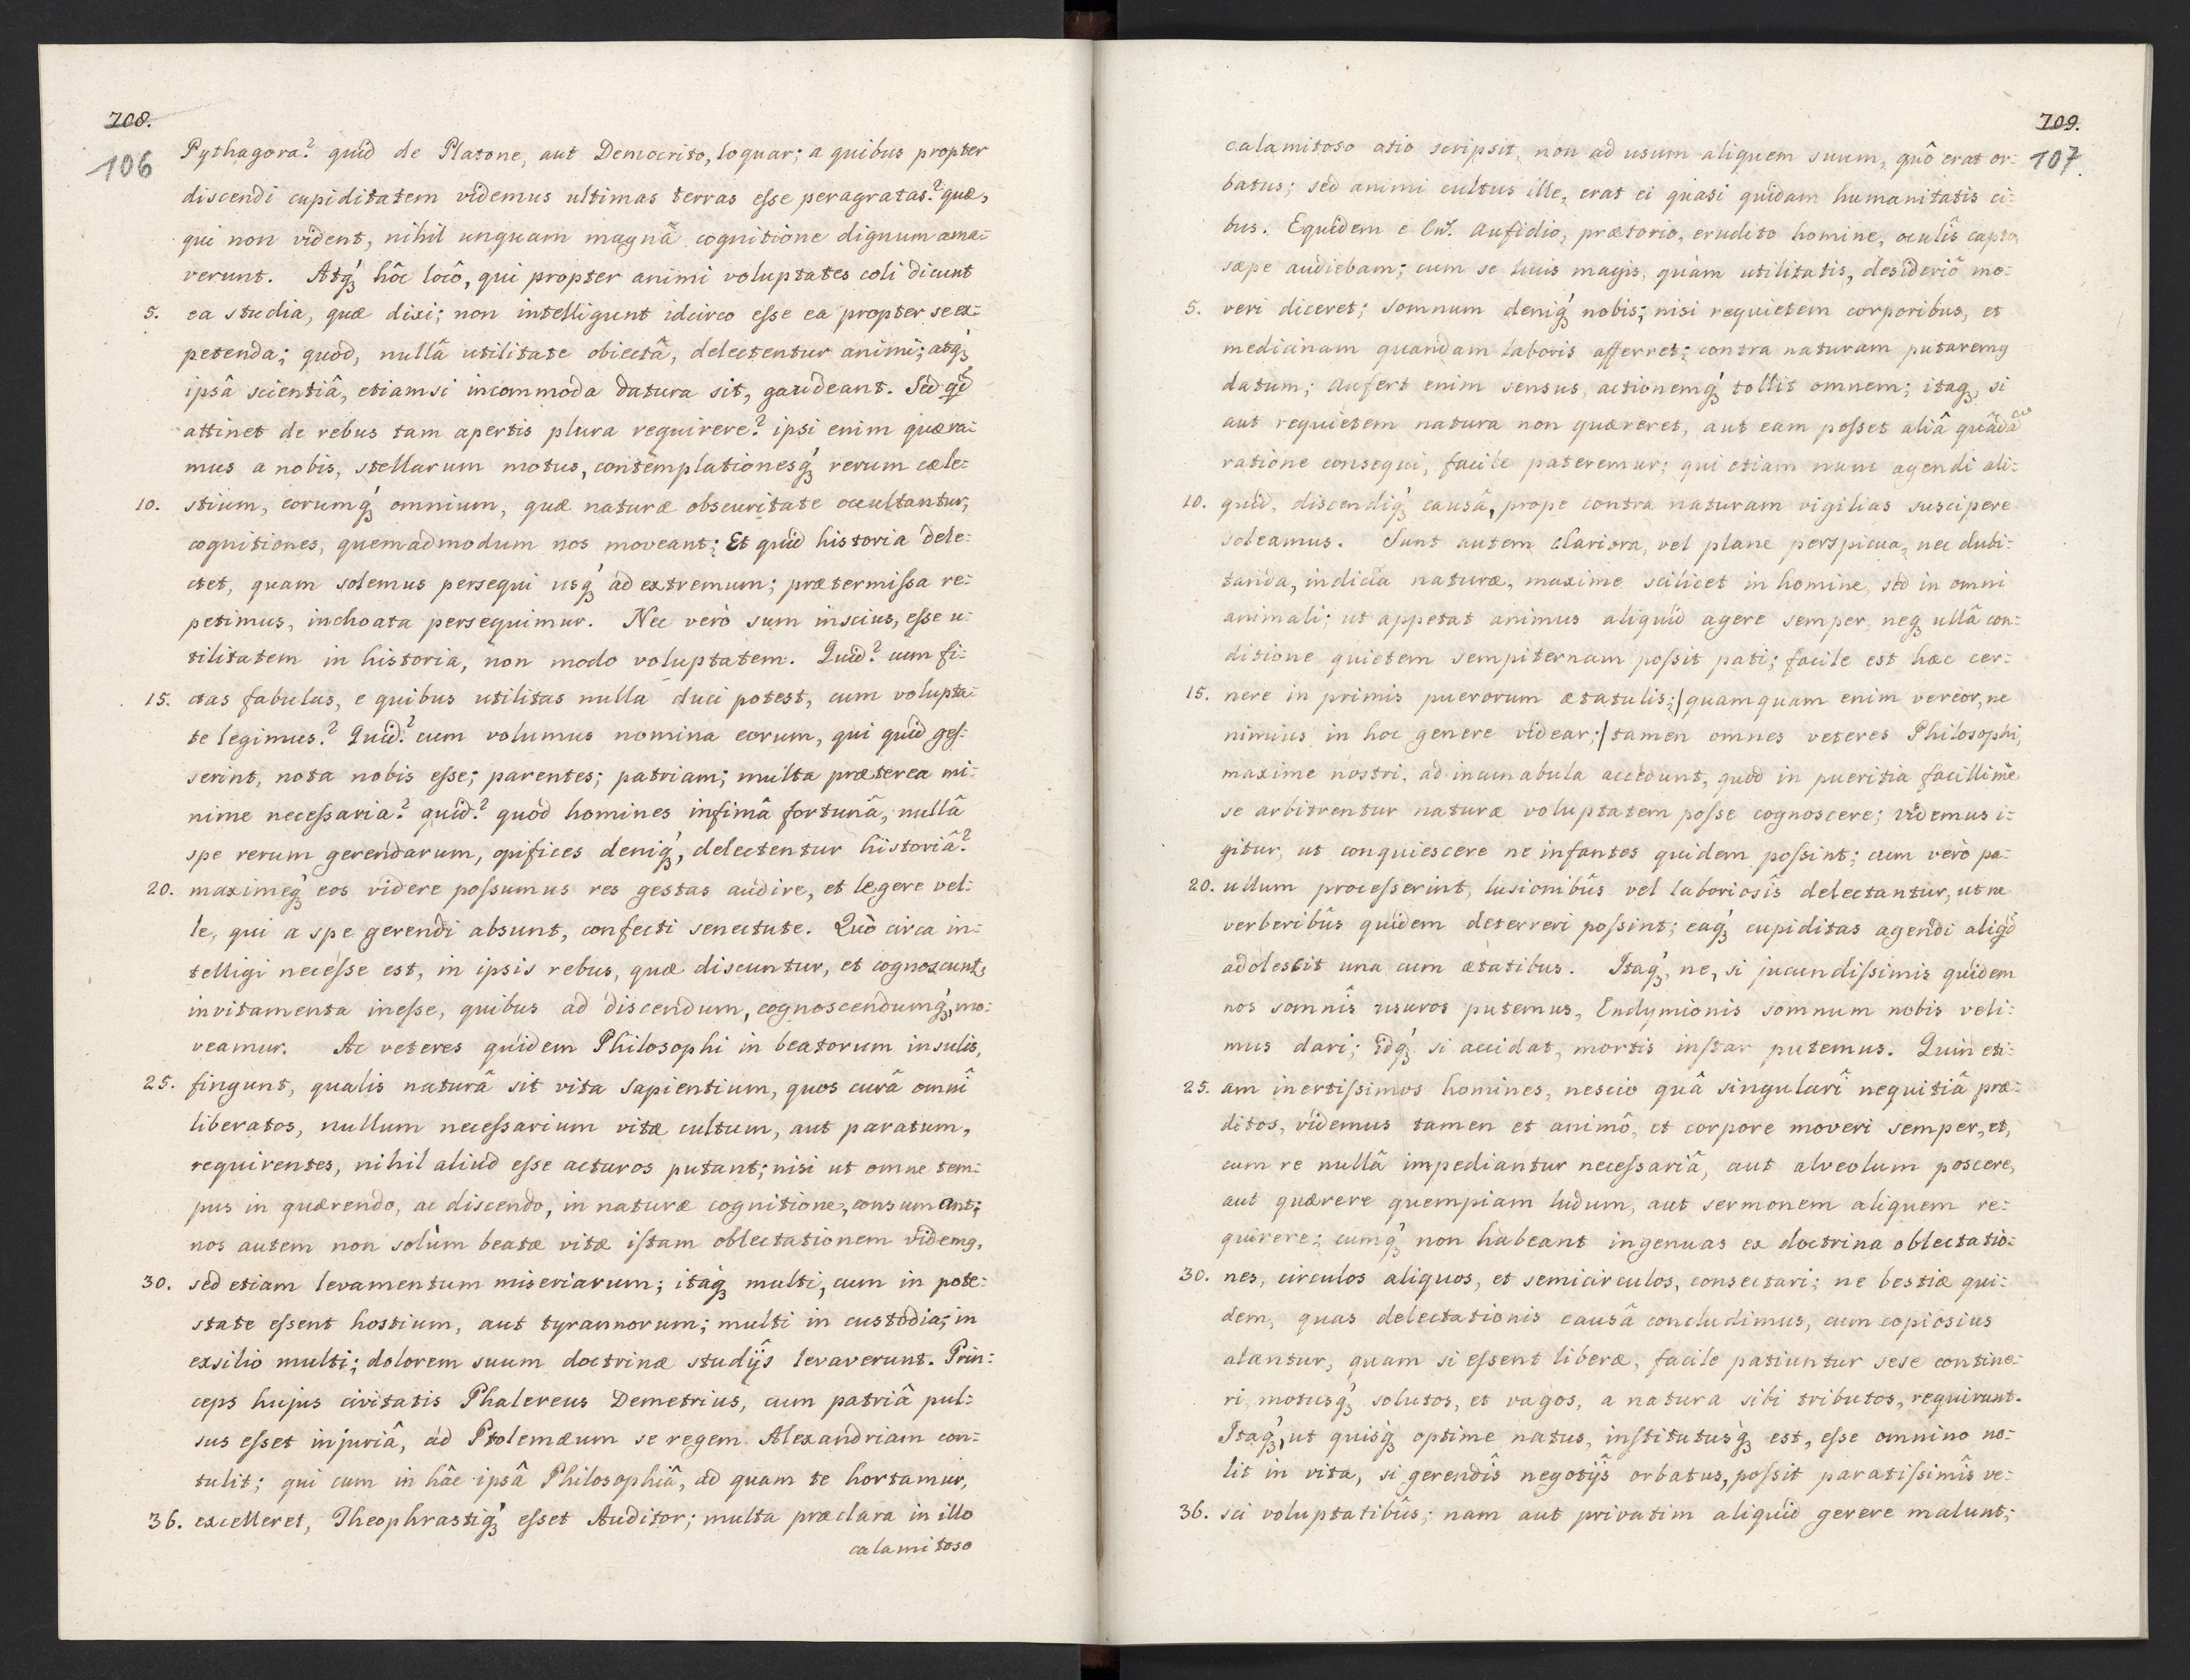 708.
106
Pythagora? quid de Platone, aut Democrito, loquar; a quibus propter
discendi cupiditatem videmus ultimas terras esse peragratas? quæ,
qui non vident, nihil unquam magnâ cognitione dignum ama=
verunt. Atq́ꝫ hôc locô, qui propter animi voluptates coli dicunt
5. ea studia, quæ dixi; non intelligunt idcirco esse ea propter se ex=
petenda; quòd, nullâ utilitate obiectâ, delectentur animi; atq́ꝫ
ipsâ scientiâ, etiamsi incommoda datura sit, gaudeant. Sed qd
attinet de rebus tam apertis plura requirere? ipsi enim quæra=
mus a nobis, stellarum motus, contemplationesq́ꝫ rerum cæle=
10. stium, eorumq́ꝫ omnium, quæ naturæ obscuritate occultantur,
cognitiones, quemadmodum nos moveant; Et quid historia dele=
ctet, quam solemus persequi usq́ꝫ ad extremum; prætermissa re=
petimus, inchoata persequimur. Nec verò sum inscius, esse u=
tilitatem in historia, non modo voluptatem. Quid? cum fi=
15. ctas fabulas, e quibus utilitas nulla duci potest, cum volupta=
te legimus? Quid? cum volumus nomina eorum, qui quid ges=
serint, nota nobis esse; parentes; patriam; multa præterea mi=
nime necessaria? quid? quod homines infimâ fortunâ, nullâ
spe rerum gerendarum, opifices deniq́ꝫ, delectentur historiâ?
20. maximeq́ꝫ eos videre possumus res gestas audire, et legere vel=
le, qui a spe gerendi absunt, confecti senectute. Quò circa in=
telligi necesse est, in ipsis rebus, quæ discuntur, et cognoscunt,
invitamenta inesse, quibus ad discendum, cognoscendumq́ꝫ, mo=
veamur. Ac veteres quidem Philosophi in beatorum insulis,
25. fingunt, qualis naturâ sit vita sapientium, quos curâ omnî
liberatos, nullum necessarium vitæ cultum, aut paratum,
requirentes, nihil aliud esse acturos putant; nisi ut omne tem=
pus in quærendo, ac discendo, in naturæ cognitione, consumant;
nos autem non solùm beatæ vitæ istam oblectationem videmꝰ,
30. sed etiam levamentum miseriarum; itaq́ꝫ multi, cum in pote=
state essent hostium, aut tyrannorum; multi in custodia; in
exsilio multi; dolorem suum doctrinæ studijs levaverunt. Prin=
ceps hujus civitatis Phalereus Demetrius, cum patriâ pul=
sus esset injuriâ, ad Ptolemæum se regem Alexandriam con=
tulit; qui cum in hâc ipsâ Philosophiâ, ad quam te hortamur,
36. excelleret, Theophrastiq́ꝫ esset Auditor; multa præclara in illo
calamitoso
709.
107.
calamitoso otio scripsit, non ad usum aliquem suum, quô erat or=
batus; sed animi cultus ille, erat ei quasi quidam humanitatis ci=
bus. Equidem e Cn. Aufidio, prætorio, erudito homine, oculîs capto,
sæpe audiebam; cum se lucis magis, quàm utilitatis, desideriô mo=
5. veri diceret; somnum deniq́ꝫ nobis; nisi requietem corporibus, et
medicinam quandam laboris afferret; contra naturam putaremꝰ
datum; aufert enim sensus, actionemq́ꝫ tollit omnem; itaqꝫ, si
aut requietem natura non quæreret, aut eam posset aliâ quâdã
ratione consequi, facile pateremur; qui etiam nunc agendi ali=
10. quid, discendiq́ꝫ causâ, prope contra naturam vigilias suscipere
soleamus. Sunt autem clariora, vel plane perspicua, nec dubi=
tanda, indicia naturæ, maxime scilicet in homine, sed in omni
animali; ut appetat animus aliquid agere semper, neqꝫ ullâ con=
ditione quietem sempiternam possit pati; facile est hæc cer=
15. nere in primis puerorum ætatulis; / quamquam enim vereor, ne
nimius in hoc genere videar; / tamen omnes veteres Philosophi,
maxime nostri, ad incunabula accedunt, quòd in pueritia facillime
se arbitrentur naturæ voluptatem posse cognoscere; videmus i=
gitur, ut conquiescere ne infantes quidem possint; cum verò pa=
20. ullum processerint, lusionibûs vel laboriosîs delectantur, ut ne
verberibûs quidem deterreri possint; eaq́ꝫ cupiditas agendi aliqd
adolescit una cum ætatibus. Itaq́ꝫ, ne, si jucundissimis quidem
nos somnîs usuros putemus, Endymionis somnum nobis veli=
mus dari; idq́ꝫ si accidat, mortis instar putemus. Quin eti=
25. am inertissimos homines, nescio quâ singularî nequitiâ præ=
ditos, videmus tamen et animô, et corpore moveri semper, et,
cum re nullâ impediantur necessariâ, aut alveolum poscere,
aut quærere quempiam ludum, aut sermonem aliquem re=
quirere; cumq́ꝫ non habeant ingenuas ex doctrina oblectatio=
30. nes, circulos aliquos, et semicirculos, consectari; ne bestiæ qui=
dem, quas delectationis causâ concludimus, cum copiosius
alantur, quam si essent liberæ, facile patiuntur sese contine=
ri, motusq́ꝫ solutos, et vagos, a natura sibi tributos, requirunt.
Itaq́ꝫ, ut quisq́ꝫ optime natus, institutusq́ꝫ est, esse omnino no=
lit in vita, si gerendîs negotijs orbatus, possit paratissimîs ve=
36. sci voluptatibûs; nam aut privatim aliquid gerere malunt;